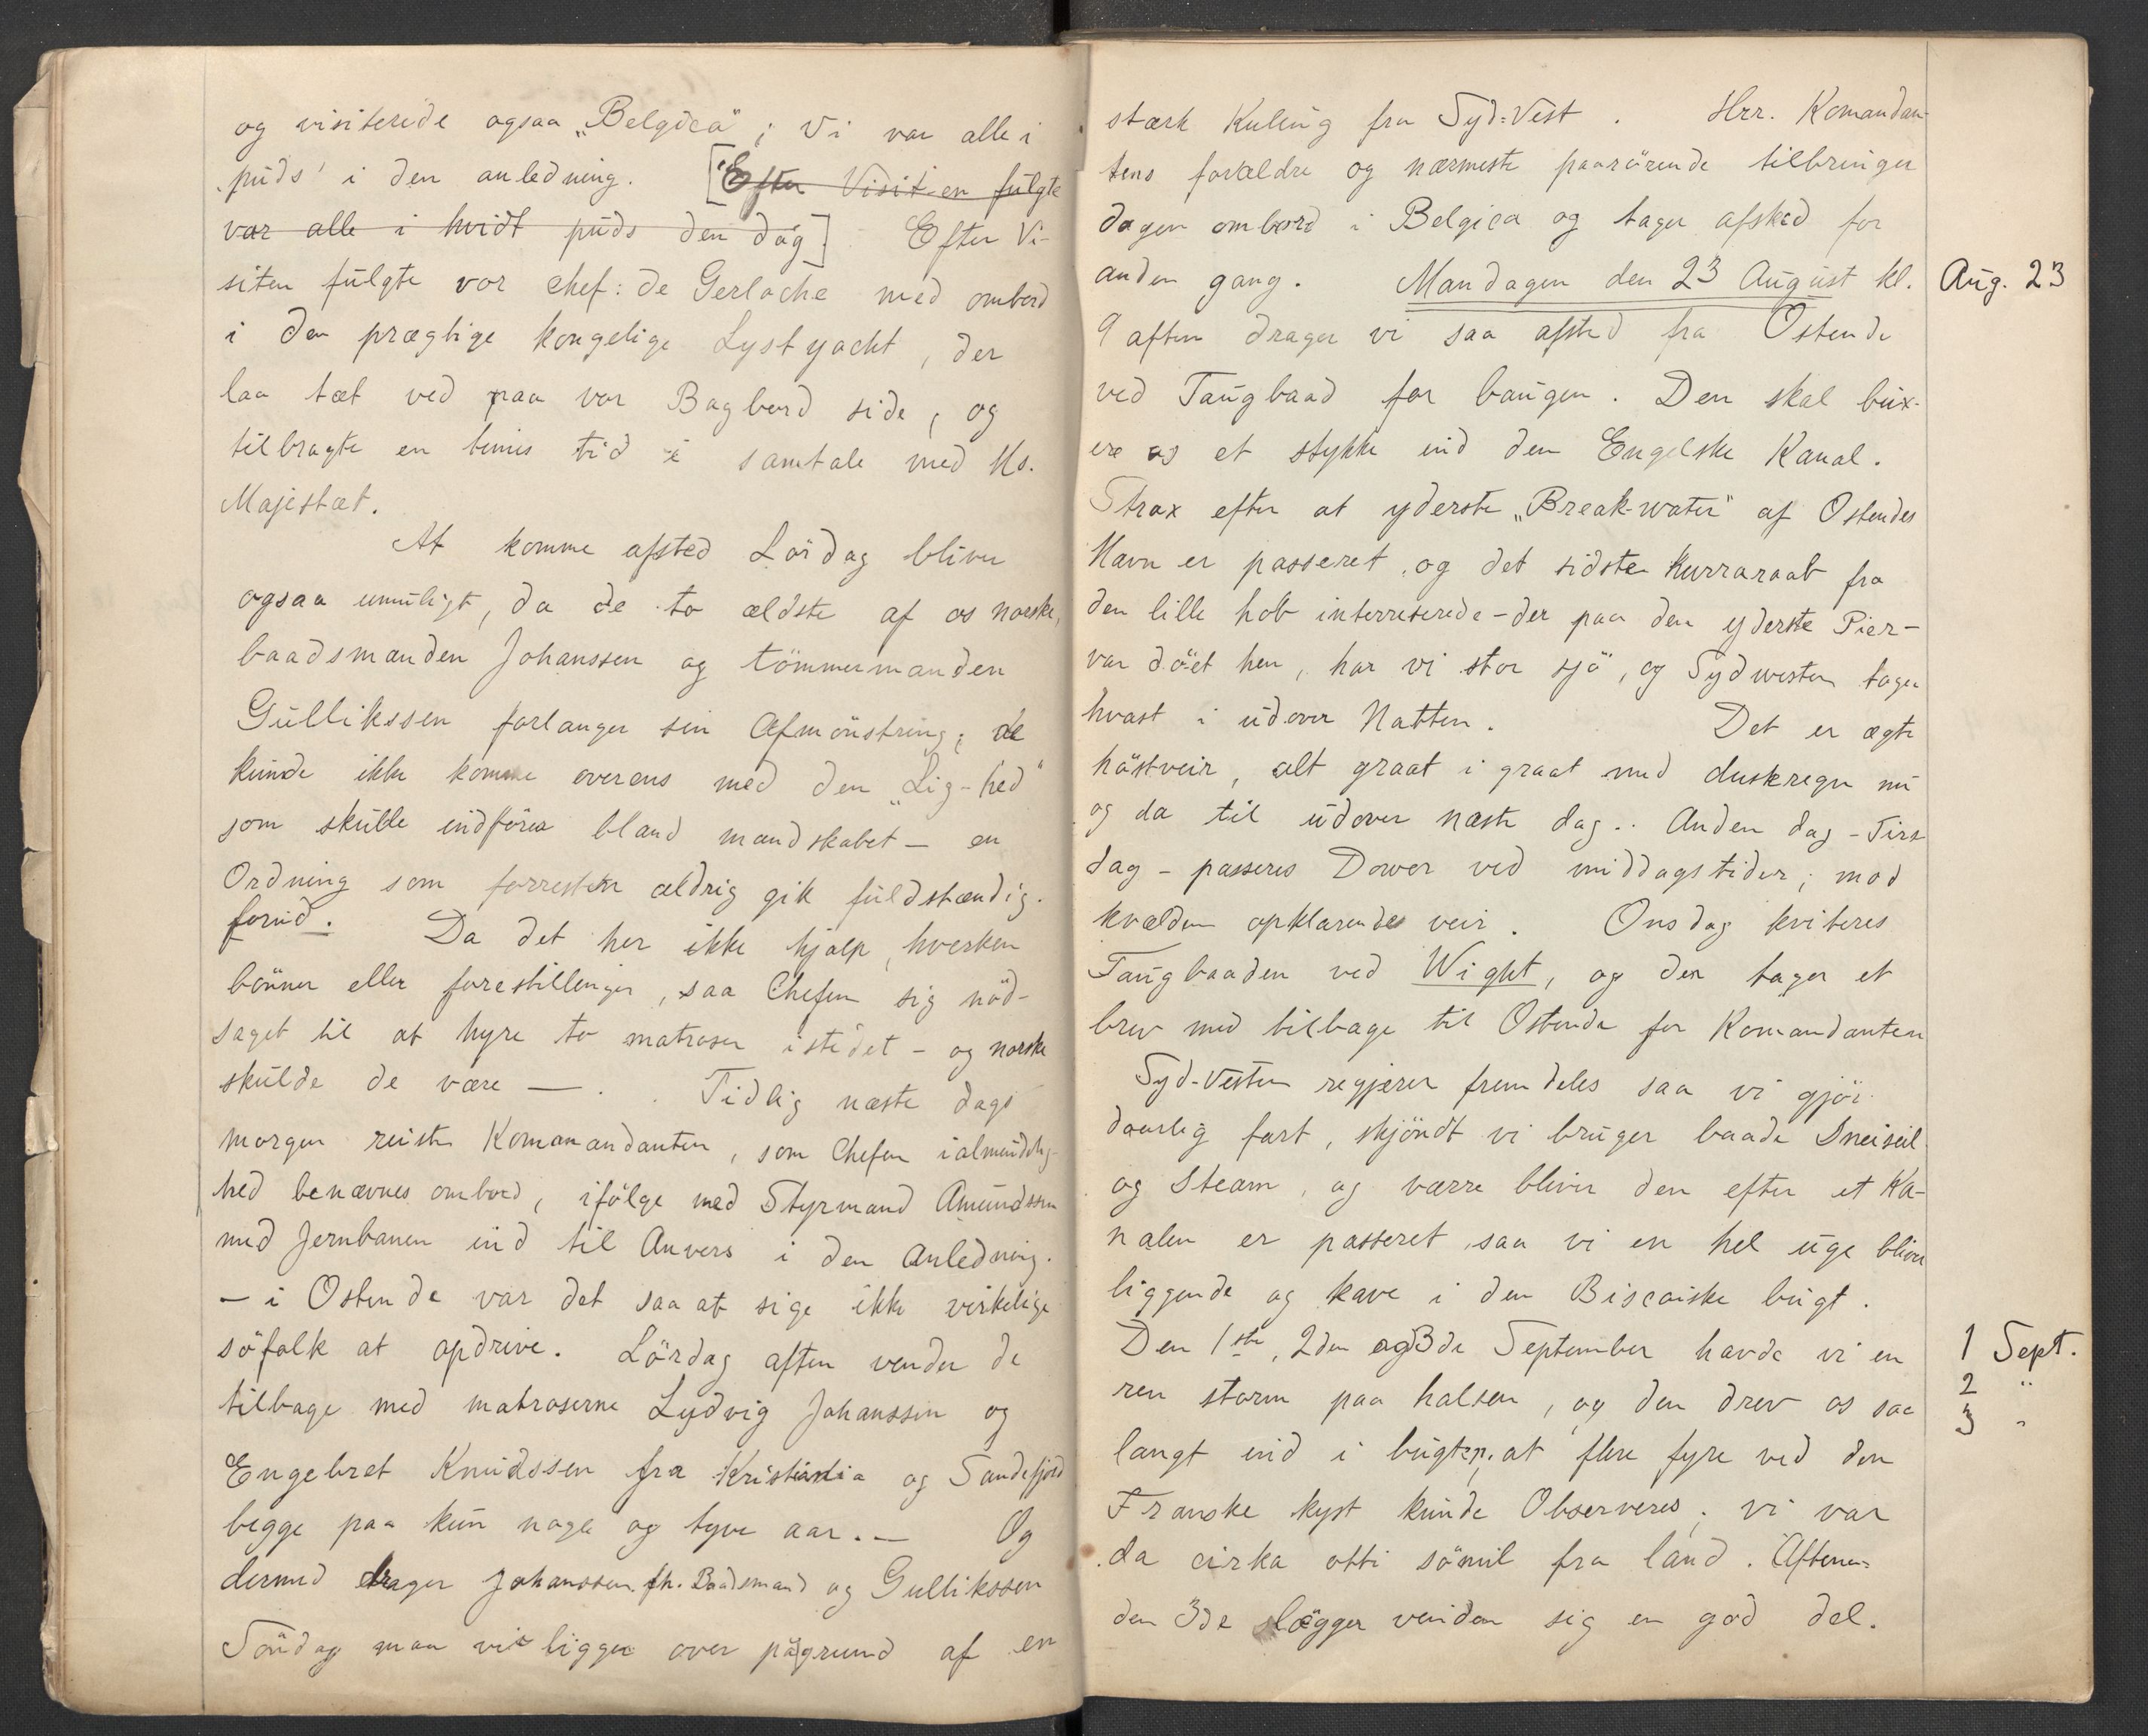 og visiterede ogsaa „Belgica"; vi var alle i
puds' i den anledning. [Efter Visiten fulgte
var alle i hvidt puds den dag] Efter Vi-
siten fulgte vor chef: de Gerlache med ombord
i den prægtige kongelige Lystyacht, der
laa tæt ved paa vor Bagbord side, og
tilbragte en times tid i samtale med Hs.
Majestæt.
At komme afsted Lördag bliver
ogsaa umuligt, da de to ældste af os norske,
baadsmanden Johanssen og tömmermanden
Gullikssen forlanger sin Afmönstring; de
kunde ikke komme overens med den „Lig-hed"
som skulle indföres bland mandskabet — en
Ordning som forresten aldrig gik fuldstændig.
forud. Da det her ikke hjalp, hverken
bönner eller forestillinger, saa Chefen sig nöd-
saget til at hyre to matroser istedet - og norske
skulde de være — . Tidlig næste dags
morgen reiste Komamandanten, som Chefen ialmindelig-
hed benævnes ombord, ifölge med Styrmand Amundssen
med Jernbanen ind til Anvers i den Anledning.
— i Ostende var det saa at sige ikke virkelige
söfolk at opdrive. Lördag aften vender de
tilbage med matroserne Ludvig Johanssen og
Engebret Knudssen fra Kristiania og Sandefjord
begge paa kun nogle og tyve aar. — Og
dermed drager Johanssen fh. Baadsmand og Gullikssen
Söndag maa vi ligge over pågrund af en
stærk Kuling fra Syd=Vest. Hrr. Komandan-
tens forældre og nærmeste paarörende tilbringer
dagen ombord i Belgica og tager afsked for
anden gang. Mandagen den 23 August kl.
Aug. 23
9 aften drager vi saa afsted fra Ostende
ved Taugbaad for baugen. Den skal bux-
ere os et stykke ind den Engelske Kanal.
Strax efter at yderste „Break-water" af Ostendes
Havn er passeret, og det sidste Hurraraab fra
den lille hob interreserede - der paa den yderste Pier -
var döet hen, har vi stor sjö, og Sydvesten tager
hvast i udover Natten. Det er ægte
höstveir, alt graat i graat med duskregn nu
og da til udover næste dag.. Anden dag - Tirs
dag - passeres Dower ved middagstider; mod
kvælden opklarendes veir. Onsdag kviteres
Taugbaaden ved Wight, og den tager et
brev med tilbage til Ostende for Komandanten
Syd-Vesten regjerer fremdeles saa vi gjör
daarlig fart, skjöndt vi bruger baade Sneiseil
og Steam, og værre bliver den efter at Ka-
nalen er passeret, saa vi en hel uge bliver
liggende og kave i den Biscaiske bugt.
Den 1ste, 2den og 3de September havde vi en
1 Sept.
ren storm paa halsen, og den drev os saa
2 "
langt ind i bugten, at flere fyre ved den
3 "
Franske kyst kunde Observeres; vi var
da cirka otti sömil fra land. Aftenen=
den 3de slögger vinden sig en god del.